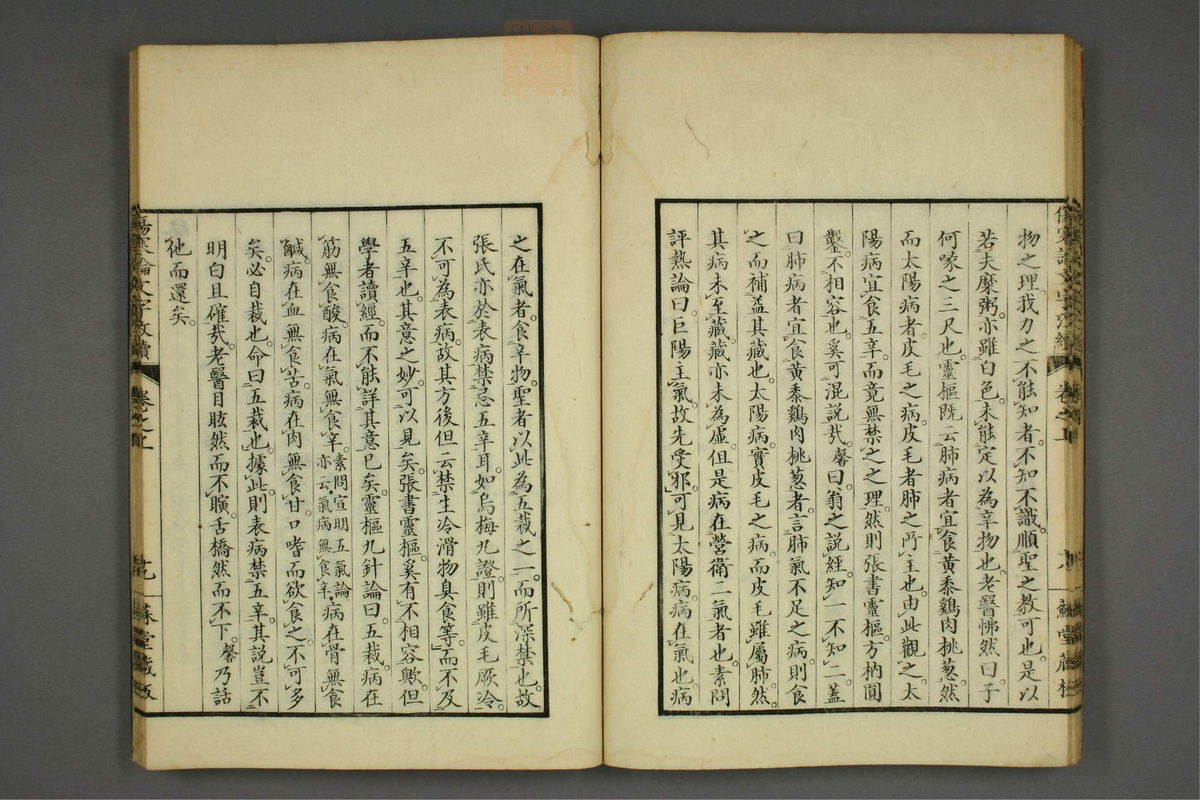 物之理我力之不能知者。不知不識。順聖之教可也。是以
若夫糜粥。亦雖白色。未能定以為辛物也。老醫怫然曰。子
何喙之三尺也。靈樞既云肺病者宜食黃黍鷄肉桃葱。然
而太陽病者。皮毛之病。皮毛者肺之所主也。由此觀之。太
陽病宜食五辛。而竟無禁之之理。然則張書靈樞。方枘圓
鑿。不相容也。奚可混説哉。馨曰。翁之説経。知一不知二。蓋
曰肺病者宜食黃黍鷄肉桃葱者。言肺氣不足之病。則食
之而補益其藏也。太陽病。實皮毛之病。而皮毛雖屬肺。然
其病未至藏。藏亦未為虛。但是病在營衛二氣者也。素問
評熱論曰。巨陽主氣。故先受邪。可見太陽病。病在氣也。病
之在氣者。食辛物。聖者以此為五裁之一。而所深禁也。故
張氏亦於表病禁忌五辛耳。如烏梅丸證。則雖皮毛厥冷。
不可為表病。故其方後但云禁生冷滑物臭食等。而不及
五辛也。其意之妙。可以見矣。張書靈樞。奚有不相容歟。但
學者讀經。而不能詳其意已矣。靈樞九針論曰。五裁。病在
筋無食酸。病在氣無食辛。素問宣明五氣論亦云。氣病無食辛。病在骨無食
鹹。病在血無食苦。病在肉無食甘。口嗜而欲食之。不可多
矣。必自裁也。命曰五裁也。據此。則表病禁五辛。其説豈不
明白且確哉。老醫目眩然而不瞚。舌橋然而不下。馨乃話
他而還矣。
傷寒論文字攷續
卷之上
蘇堂藏版
八